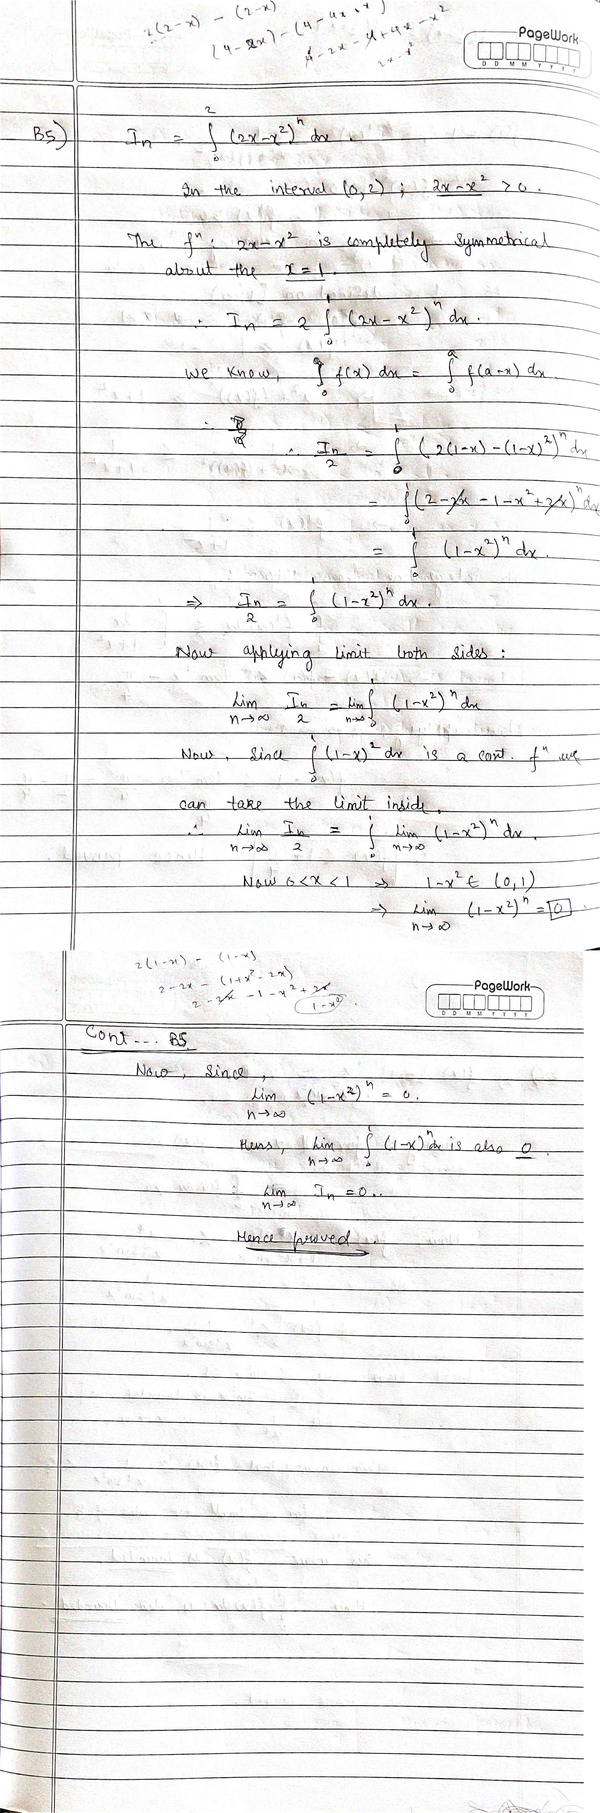 2(2-x) - (2-x)
(4-2x) - (4-4x+x²)
4-2x-4+4x-x²
2x-x²
PageWork
D D M M Y Y Y Y
B5) Iₙ = ∫₀² (2x-x²)ⁿ dx.
In the interval (0, 2) ; 2x-x² > 0.
The fⁿ: 2x-x² is completely symmetrical
about the x=1.
∴ Iₙ = 2 ∫₀¹ (2x-x²)ⁿ dx.
We know, ∫₀ᵃ f(x) dx = ∫₀ᵃ f(a-x) dx.
∴ ∴ Iₙ/2 = ∫₀¹ (2(1-x) - (1-x)²)ⁿ dx
= ∫₀¹ (2-2x-1-x²+2x)ⁿ dx
= ∫₀¹ (1-x²)ⁿ dx.
⇒ Iₙ/2 = ∫₀¹ (1-x²)ⁿ dx.
Now applying limit both sides :
Lim n→∞ Iₙ/2 = Lim n→∞ ∫₀¹ (1-x²)ⁿ dx
Now, since ∫₀¹ (1-x)² dx is a cont. fⁿ we
can take the limit inside.
∴ Lim n→∞ Iₙ/2 = ∫₀¹ Lim n→∞ (1-x²)ⁿ dx.
Now 0<x<1 ⇒ 1-x² ∈ (0,1)
⇒ Lim n→∞ (1-x²)ⁿ = 0
2(1-x) - (1-x)
2-2x - (1+x²-2x)
2-2x-1-x²+2x
1-x²
PageWork
D D M M Y Y Y Y
Cont... B5
Now, since,
Lim n→∞ (1-x²)ⁿ = 0.
Hens, Lim n→∞ ∫₀¹ (1-x)ⁿ dx is also 0.
Lim n→∞ Iₙ = 0..
Hence proved.